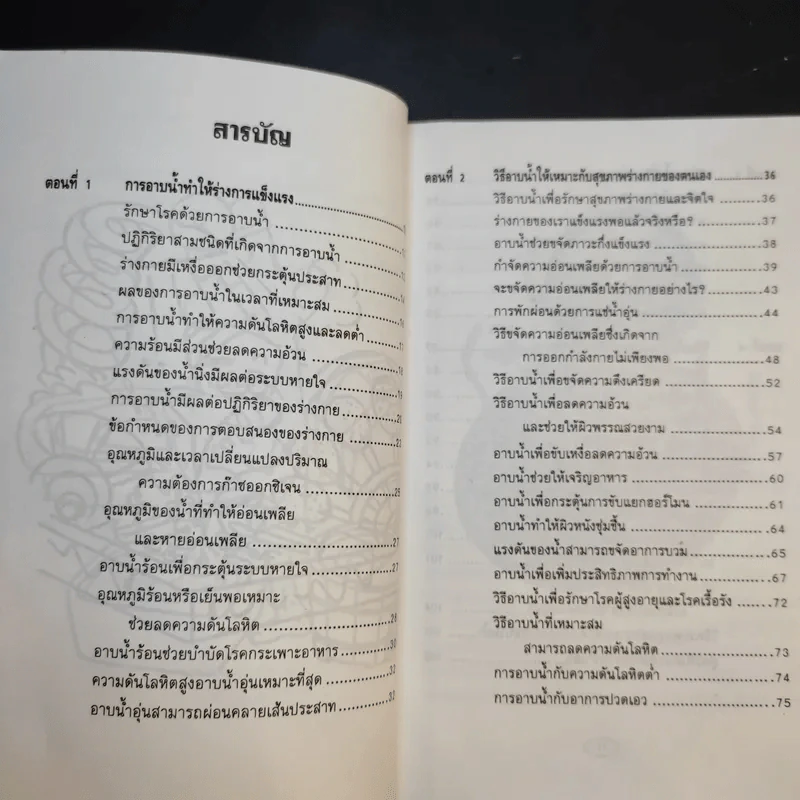 สารบัญ
ตอนที่ 1 การอาบน้ำทำให้ร่างการแข็งแรง
รักษาโรคด้วยการอาบน้ำ
ปฏิกิริยาสามชนิดที่เกิดจากการอาบน้ำ
ร่างกายมีเหงื่อออกช่วยกระตุ้นประสาท
ผลของการอาบน้ำในเวลาที่เหมาะสม
การอาบน้ำทำให้ความดันโลหิตสูงและลดต่ำ
ความร้อนมีส่วนช่วยลดความอ้วน
แรงดันของน้ำนิ่งมีผลต่อระบบหายใจ
การอาบน้ำมีผลต่อปฏิกิริยาของร่างกาย
ข้อกำหนดของการตอบสนองของร่างกาย
อุณหภูมิและเวลาเปลี่ยนแปลงปริมาณ
ความต้องการก๊าซออกซิเจน 25
อุณหภูมิของน้ำที่ทำให้อ่อนเพลีย
และหายอ่อนเพลีย 27
อาบน้ำร้อนเพื่อกระตุ้นระบบหายใจ 27
อุณหภูมิร้อนหรือเย็นพอเหมาะ
ช่วยลดความดันโลหิต
อาบน้ำร้อนช่วยบำบัดโรคกระเพาะอาหาร 30
ความดันโลหิตสูงอาบน้ำอุ่นเหมาะที่สุด 32
อาบน้ำอุ่นสามารถผ่อนคลายเส้นประสาท
ตอนที่ 2 วิธีอาบน้ำให้เหมาะกับสุขภาพร่างกายของตนเอง 36
วิธีอาบน้ำเพื่อรักษาสุขภาพร่างกายและจิตใจ 36
ร่างกายของเราแข็งแรงพอแล้วจริงหรือ? 37
อาบน้ำช่วยขจัดภาวะกึ่งแข็งแรง 38
กำจัดความอ่อนเพลียด้วยการอาบน้ำ 39
จะขจัดความอ่อนเพลียให้ร่างกายอย่างไร? 43
การพักผ่อนด้วยการแช่น้ำอุ่น 44
วิธีขจัดความอ่อนเพลียซึ่งเกิดจาก
การออกกำลังกายไม่เพียงพอ 48
วิธีอาบน้ำเพื่อขจัดความตึงเครียด 52
วิธีอาบน้ำเพื่อลดความอ้วน
และช่วยให้ผิวพรรณสวยงาม 54
อาบน้ำเพื่อขับเหงื่อลดความอ้วน 57
อาบน้ำช่วยให้เจริญอาหาร 60
อาบน้ำเพื่อกระตุ้นการขับแยกฮอร์โมน 61
อาบน้ำทำให้ผิวหนังชุ่มชื้น 64
แรงดันของน้ำสามารถขจัดอาการบวม 65
อาบน้ำเพื่อเพิ่มประสิทธิภาพการทำงาน 67
วิธีอาบน้ำเพื่อรักษาโรคผู้สูงอายุและโรคเรื้อรัง 72
วิธีอาบน้ำที่เหมาะสม
สามารถลดความดันโลหิต 73
การอาบน้ำกับความดันโลหิตต่ำ 74
การอาบน้ำกับอาการปวดเอว 75